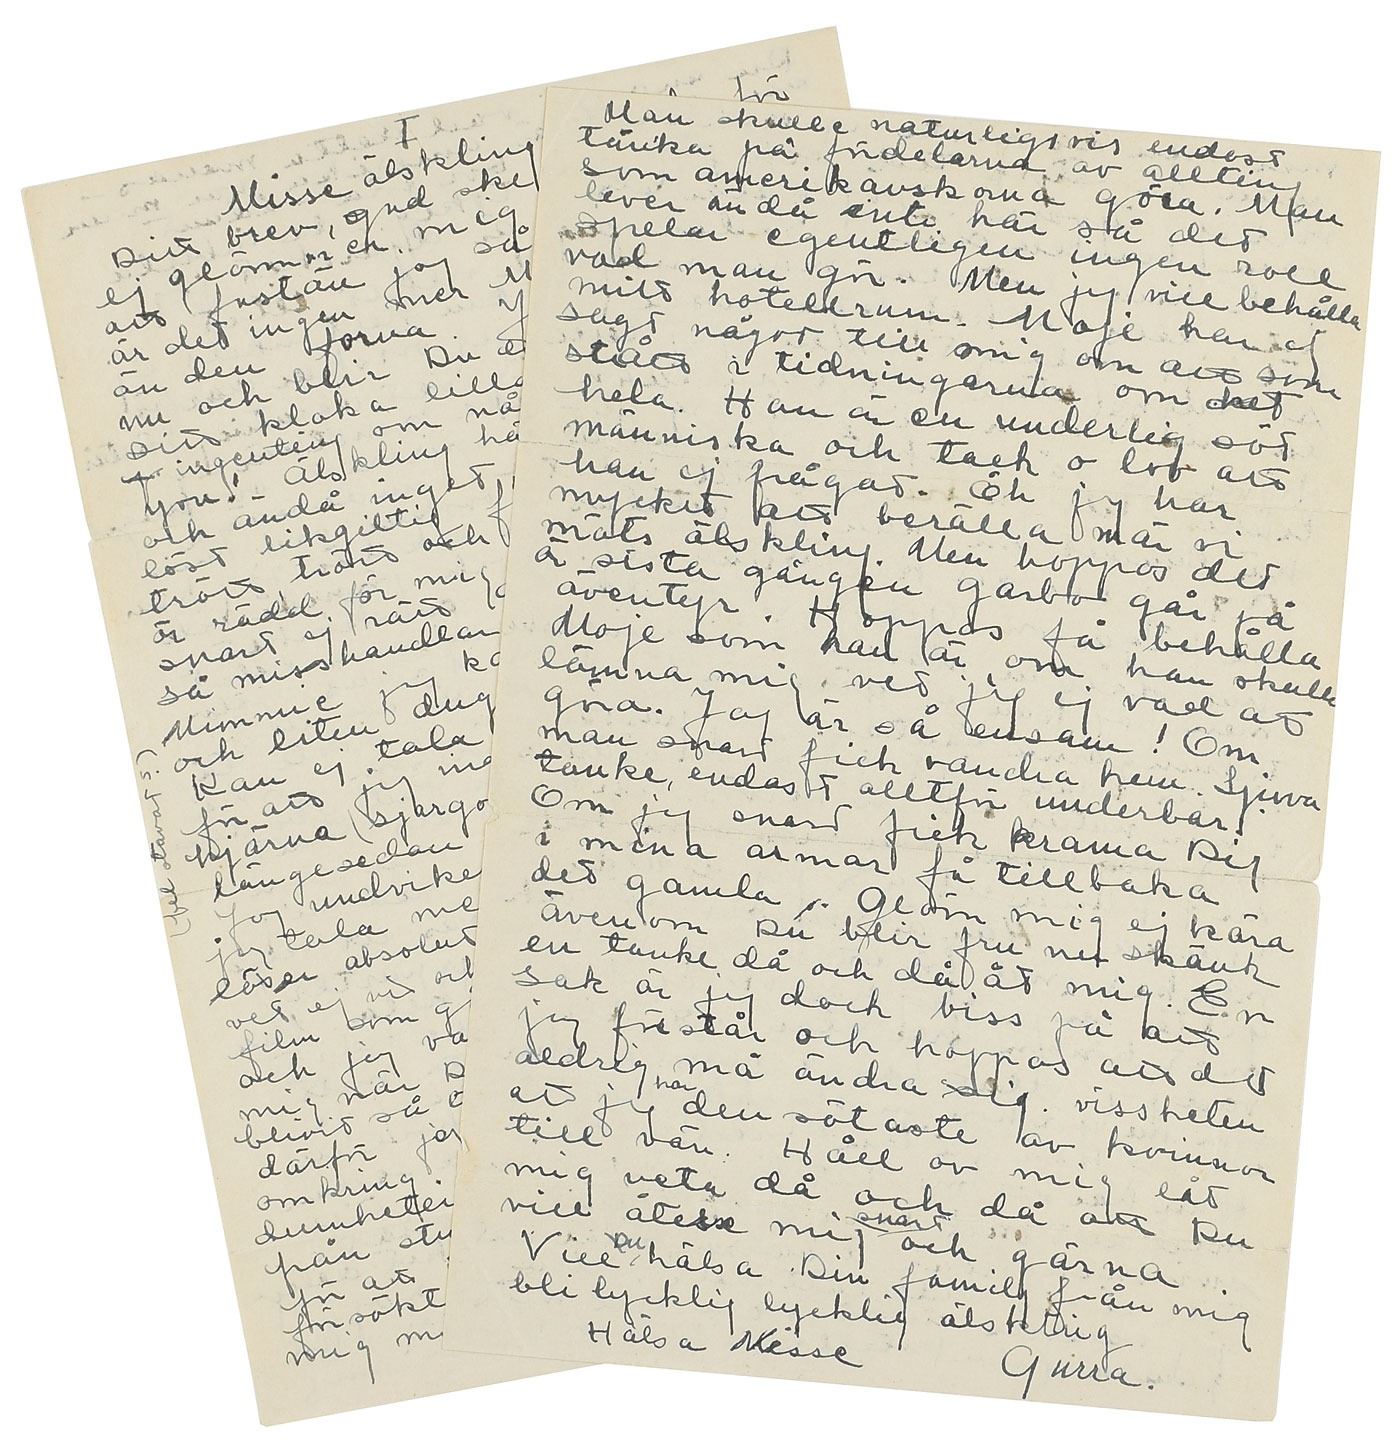 I
Misse älskling
Ditt brev, gud ske
ej glömmer mig
att fastän jag så
är det ingen mer M
än den forna
nu och blir Du
sitt kloka lilla
ingenting om nå
you! Älskling hå
och ändå inget,
löst likgiltig f
trött, trött och
är rädd för mig
snart ej rätt
så misshandlar
Mimmie jag ka
och liten dug
Kan ej tala
för att jag
hjärna (sjargo
(fel stavat s.?)
längesedan
Jag undvike
jag tala me
läser absolut
vet ej vid och
film som g
och jag va
mig när D
blivit så
därför jag
omkring
dumheter
från stu
för att
försökt
mig m
för
Man skulle naturligsvis endast
tänka på fördelarna av allting
som amerikanskorna göra. Man
lever ändå inte här så det
spelar egentligen ingen roll
vad man gör. Men jag vill behålla
mitt hotellrum. Moje har ej
sagt något till mig om att som
stått i tidningarna om det
hela. Han är en underlig söt
människa och tack o lov att
han ej frågat. Åh jag har
mycket att berätta när vi
mäts älskling. Men hoppas det
är sista gången garbo går på
äventyr. Hoppas få behålla
Moje som han är om han skulle
lämna mig vet jag ej vad att
göra. Jag är så ensam! Om
man snart fick vandra hem. Ljuva
tanke, endast alltför underbar!
Om jag snart fick krama Dig
i mina armar få tillbaka
det gamla. Glöm mig ej kära
även om Du blir fru nu skänk
en tanke då och då åt mig. En
sak är jag dock viss på att
jag förstår och hoppas att det
aldrig må ändra sig. vissheten
att jag har den sötaste av kvinnor
till vän. Håll av mig låt
mig veta då och då att Du
vill återse mig snart och gärna
Vill Du hälsa Din family från mig
bli lycklig lycklig älskling
Hälsa Nisse
Gurra.